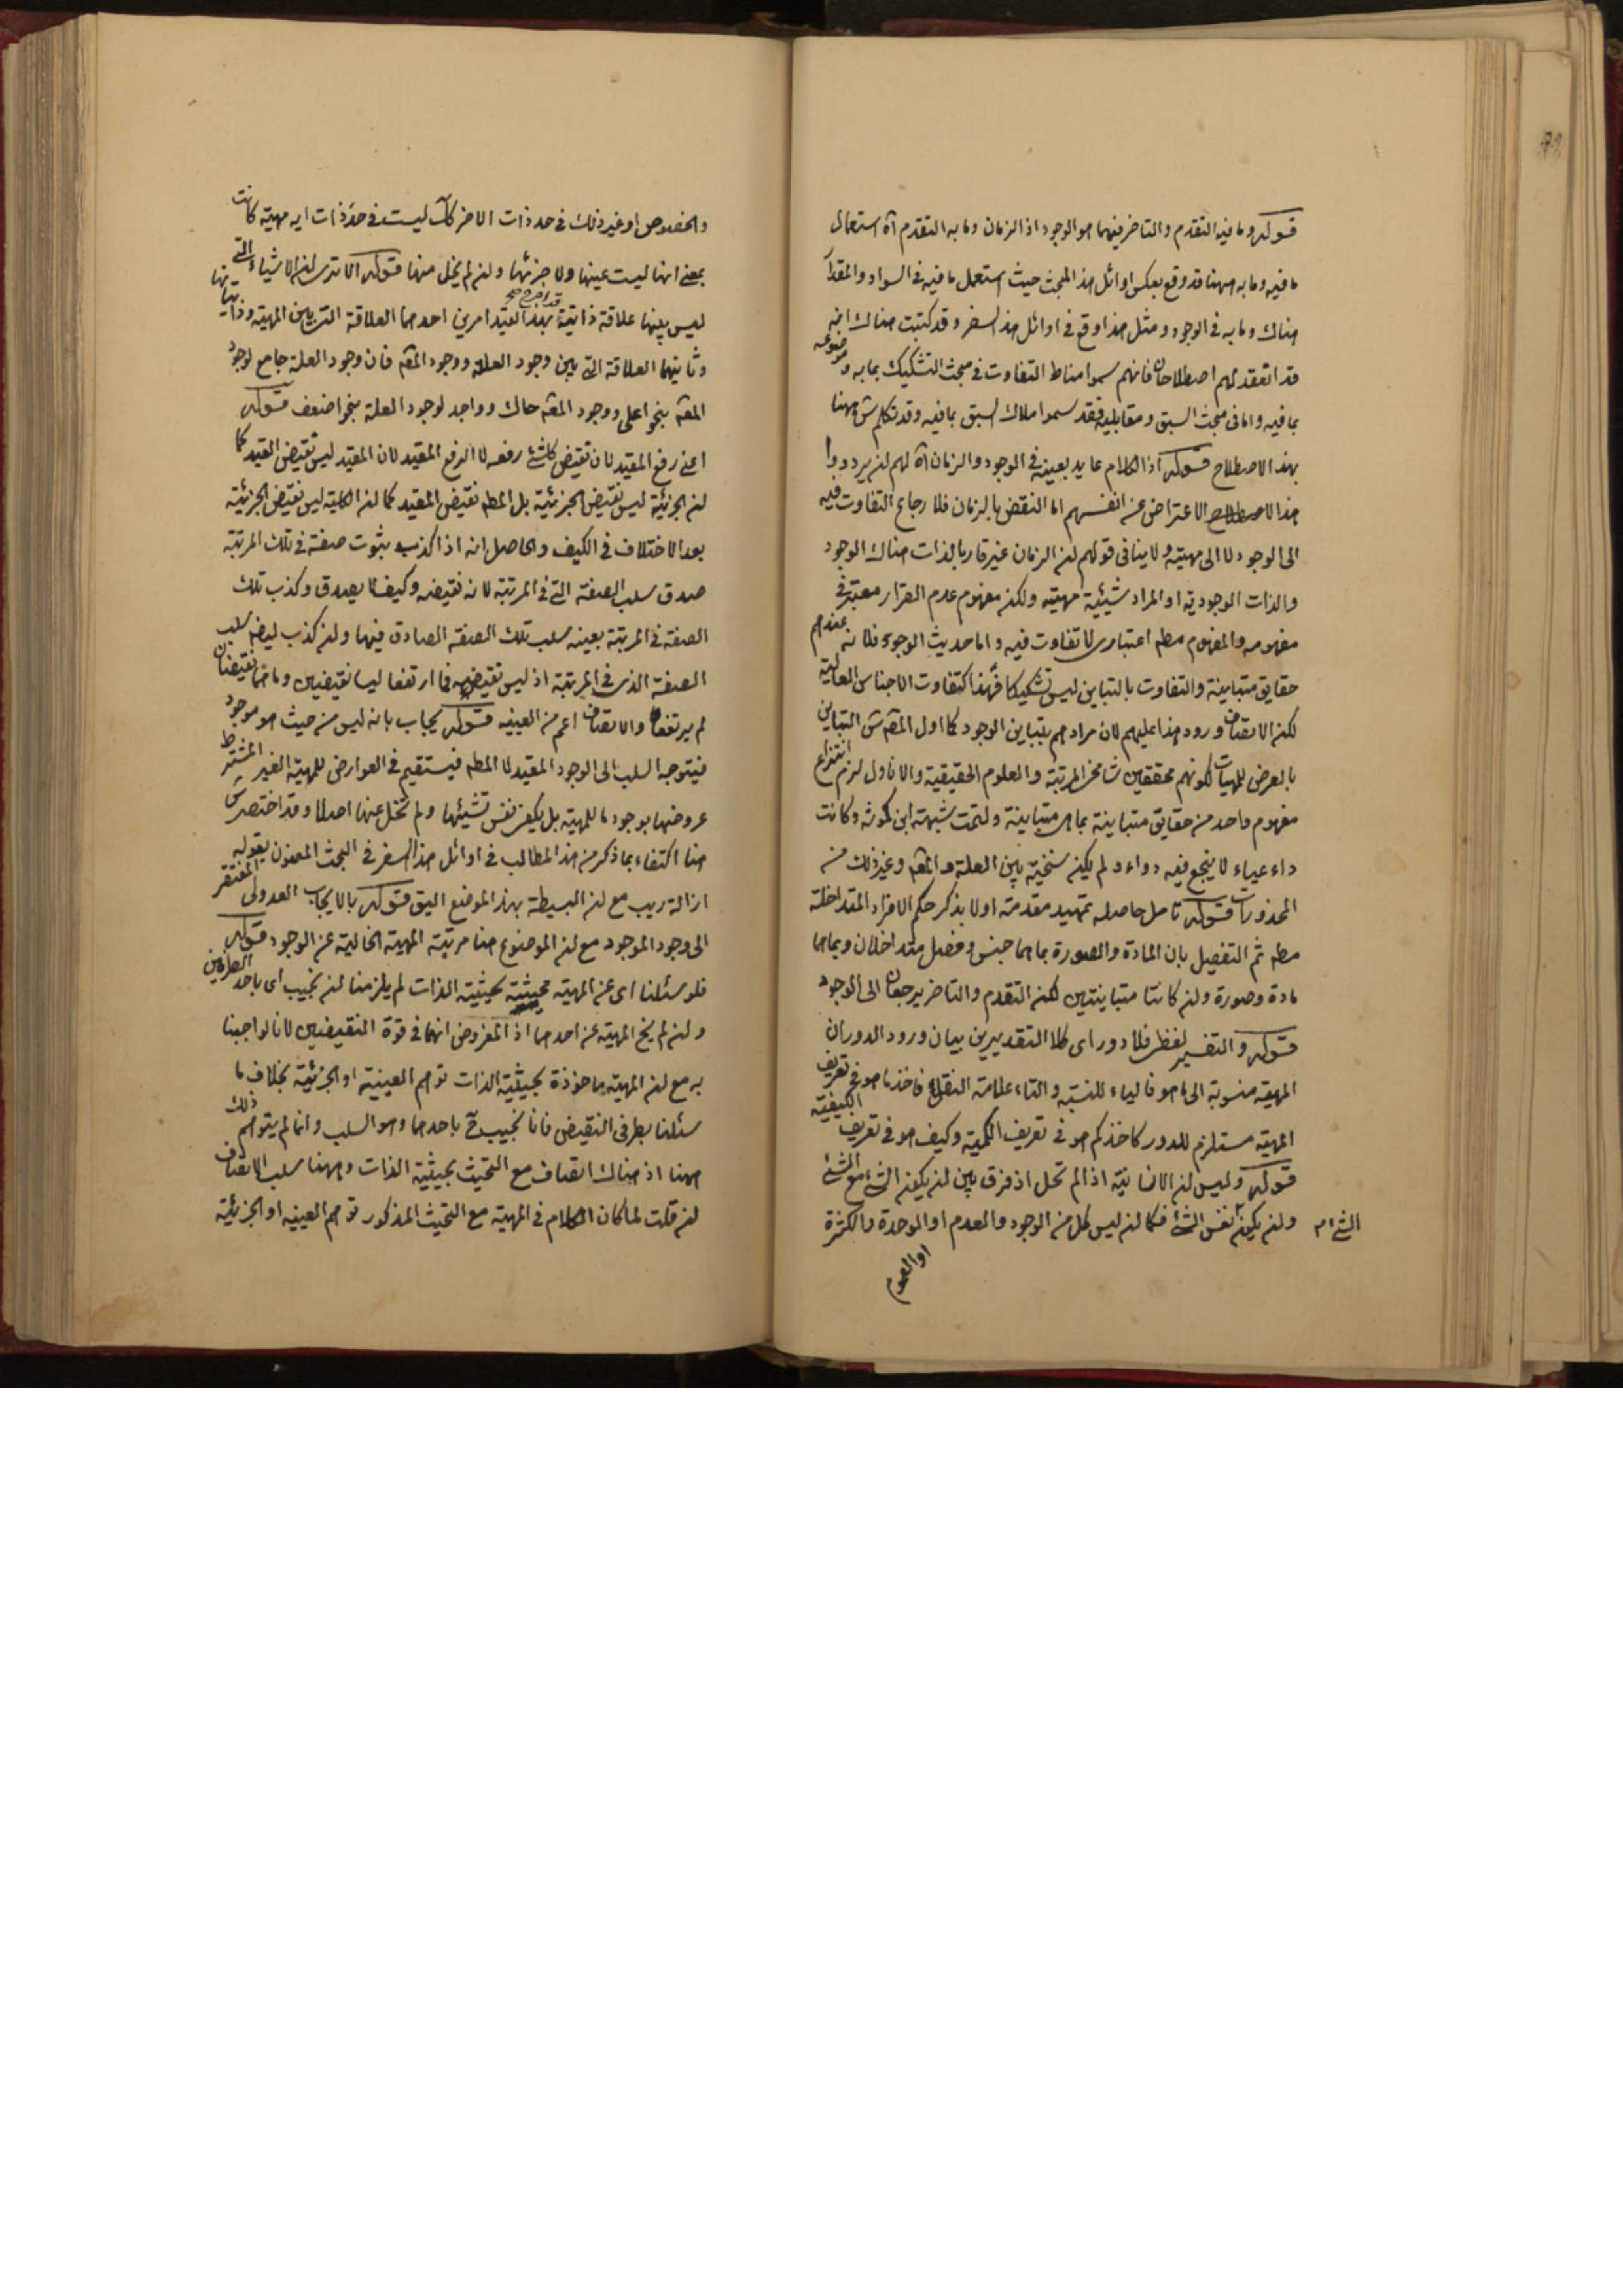 قوله وما فيه التقدم والتاخر فيهما هو الوجود اذ الزمان وما به التقدم آه استعمال
ما فيه وما به ههنا قد وقع بعكس اوائل هذا المبحث حيث استعمل ما فيه في السواد والمقدار
هناك وما به في الوجود ومثل هذا وقع في اوائل هذا السفر وقد كتبت هناك انه
قد انعقد لهم اصطلاحان فانهم سموا مناط التفاوت في مبحث التشكيك بما به وموضوعه
بما فيه واما في مبحث السبق ومقابليه فقد سموا ملاك السبق بما فيه وقد تكلم ش ههنا
بهذا الاصطلاح قوله اذ الكلام عايد بعينه في الوجود والزمان آه لهم ان يردوا
هذا الاعتراض عن انفسهم اما النقض بالزمان فلارجاع التفاوت فيه
الى الوجود لا الى مهيته ولا ينافي قولهم ان الزمان غير قار بالذات هناك الوجود
والذات الوجودية او المراد شيئية مهيته ولكن مفهوم عدم القرار معتبر في
مفهومه والمفهوم مطه اعتبارى لا تفاوت فيه واما حديث الوجود فلانه عندهم
حقايق متباينة والتفاوت بالتباين ليس تشكيكا فهذا كتفاوت الاجناس العالية
لكن الانصاف ورود هذا عليهم لان مرادهم بتباين الوجود كما اول المقه ش التباين
بالعرض للمهيات لكونهم محققين شامخ المرتبة والعلوم الحقيقية والا ناول لزم انتزاع
مفهوم واحد من حقايق متباينة بما هى متباينة ولتمت شبهته ابن كمونه وكانت
داء عياء لا ينجع فيه دواء ولم يكن سنخية بين العلة والمعه وغير ذلك من
المحذورات قوله تامل حاصله تمهيد مقدمته اولا بذكر حكم الافراد المتداخلة
مطه ثم التفصيل بان المادة والصورة بما هما جنس وفصل متداخلان وبما هما
مادة وصورة وان كانتا متباينتين لكن التقدم والتاخر يرجعان الى الوجود
قوله والتفسير لفظى فلا دور اى كلا التقديرين بيان ورود الدوران
المهية منسوبة الى ما هو فالياء للنسبة والتاء علامة النقل فاخذ ما هو في تعريف
المهية مستلزم للدور كاخذ كم هو في تعريف الكمية وكيف هو في تعريف الكيفية
قوله وليس ان الانسانية اذا لم تخل اذ فرق بين ان يكون الشئ مع الشئ
وان يكون نفس الشئ فكما ان ليس كل من الوجود والعدم او الوحدة والكثرة
او العموم
والخصوص او غير ذلك في حد ذات الاخر كك ليست في حد ذات اية مهية كانت
بمعنى انها ليست عينها ولا جزئها وان لم يخل منها قوله الا ترى ان الاشياء التى
ليس بينها علاقة ذاتية قد اخرج بهذا القيد امرين احدهما العلاقة التى بين المهية وذاتياتها
وثانيهما العلاقة التى بين وجود العلة ووجود المعه فان وجود العلة جامع لوجود
المعه بنحو اعلى ووجود المعه حاك وواجد لوجود العلة بنحو اضعف قوله
اعنى رفع المقيد لان نقيض كل شئ رفعه لا الرفع المقيد لان المقيد ليس نقيض القيد كما
ان الجزئية ليس نقيض الجزئية بل المطه نقيض المقيد كما ان الكلية ليس نقيض الجزئية
بعد الاختلاف في الكيف والحاصل انه اذا كذب ثبوت صفة في تلك المرتبة
صدق سلب الصفة التى في المرتبة لانه نقيضه وكيف لا يصدق وكذب تلك
الصفة في المرتبة بعينه سلب تلك الصفة الصادق فيها وان كذب ايضه سلب
الصفة الذى في المرتبة اذ ليس نقيضه فما ارتفعا ليسا نقيضين وما هما نقيضان
لم يرتفعا والاتصاف اعم من العينيه قوله يجاب بانه ليس من حيث هو موجود
فيتوجه السلب الى الوجود المقيد لا المطه فيستقيم في العوارض للمهية الغير المشترط
عروضها بوجود ما للمهية بل يكفى نفس تشيئها ولم تخل عنها اصلا وقد اختصر س
هنا اكتفاء بما ذكر من هذا المطالب في اوائل هذا السفر في البحث المعنون بقوله
ازالة ريب مع ان البسيطة بهذا الموضع اليق قوله بالايجاب العدولى المفتقر
الى وجود الموجود مع ان الموضوع هنا مرتبة المهية الخالية عن الوجود قوله
فلو سئلنا اى عن المهية محيثة بحيثية الذات لم يلزمنا ان نجيب اى باحد الطرفين
وان لم يخ المهية عن احدهما اذ المفروض انهما في قوة النقيضين لانا لو اجبنا
به مع ان المهية ماخوذة بحيثية الذات توهم العينية او الجزئية بخلاف ما
سئلنا بطرفى النقيض فانا نجيب ح باحدهما وهو السلب وانما لم يتوهم ذلك
ههنا اذ هناك اتصاف مع التحيث بحيثية الذات وههنا سلب الاتصاف
ان قلت لما كان الكلام في المهية مع التحيث المذكور توهم العينيه او الجزئية